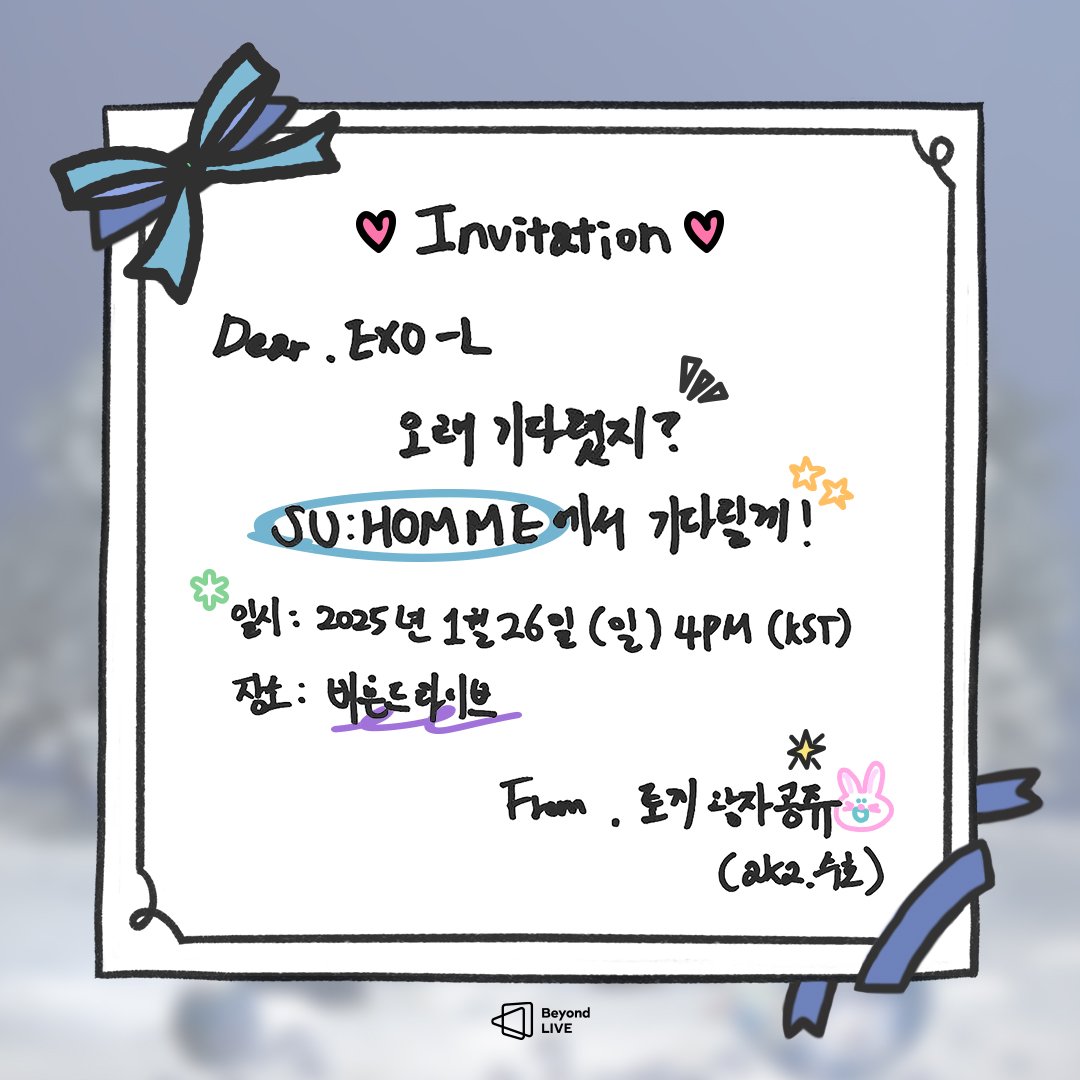 Invitation
Dear. EXO-L
오래 기다렸지?
SU:HOMME에서 기다릴게!
일시: 2025년 1월 26일 (일) 4PM (KST)
장소: 비욘드라이브
From. 토끼 왕자공쥬
(aka.수호)
Beyond
LIVE